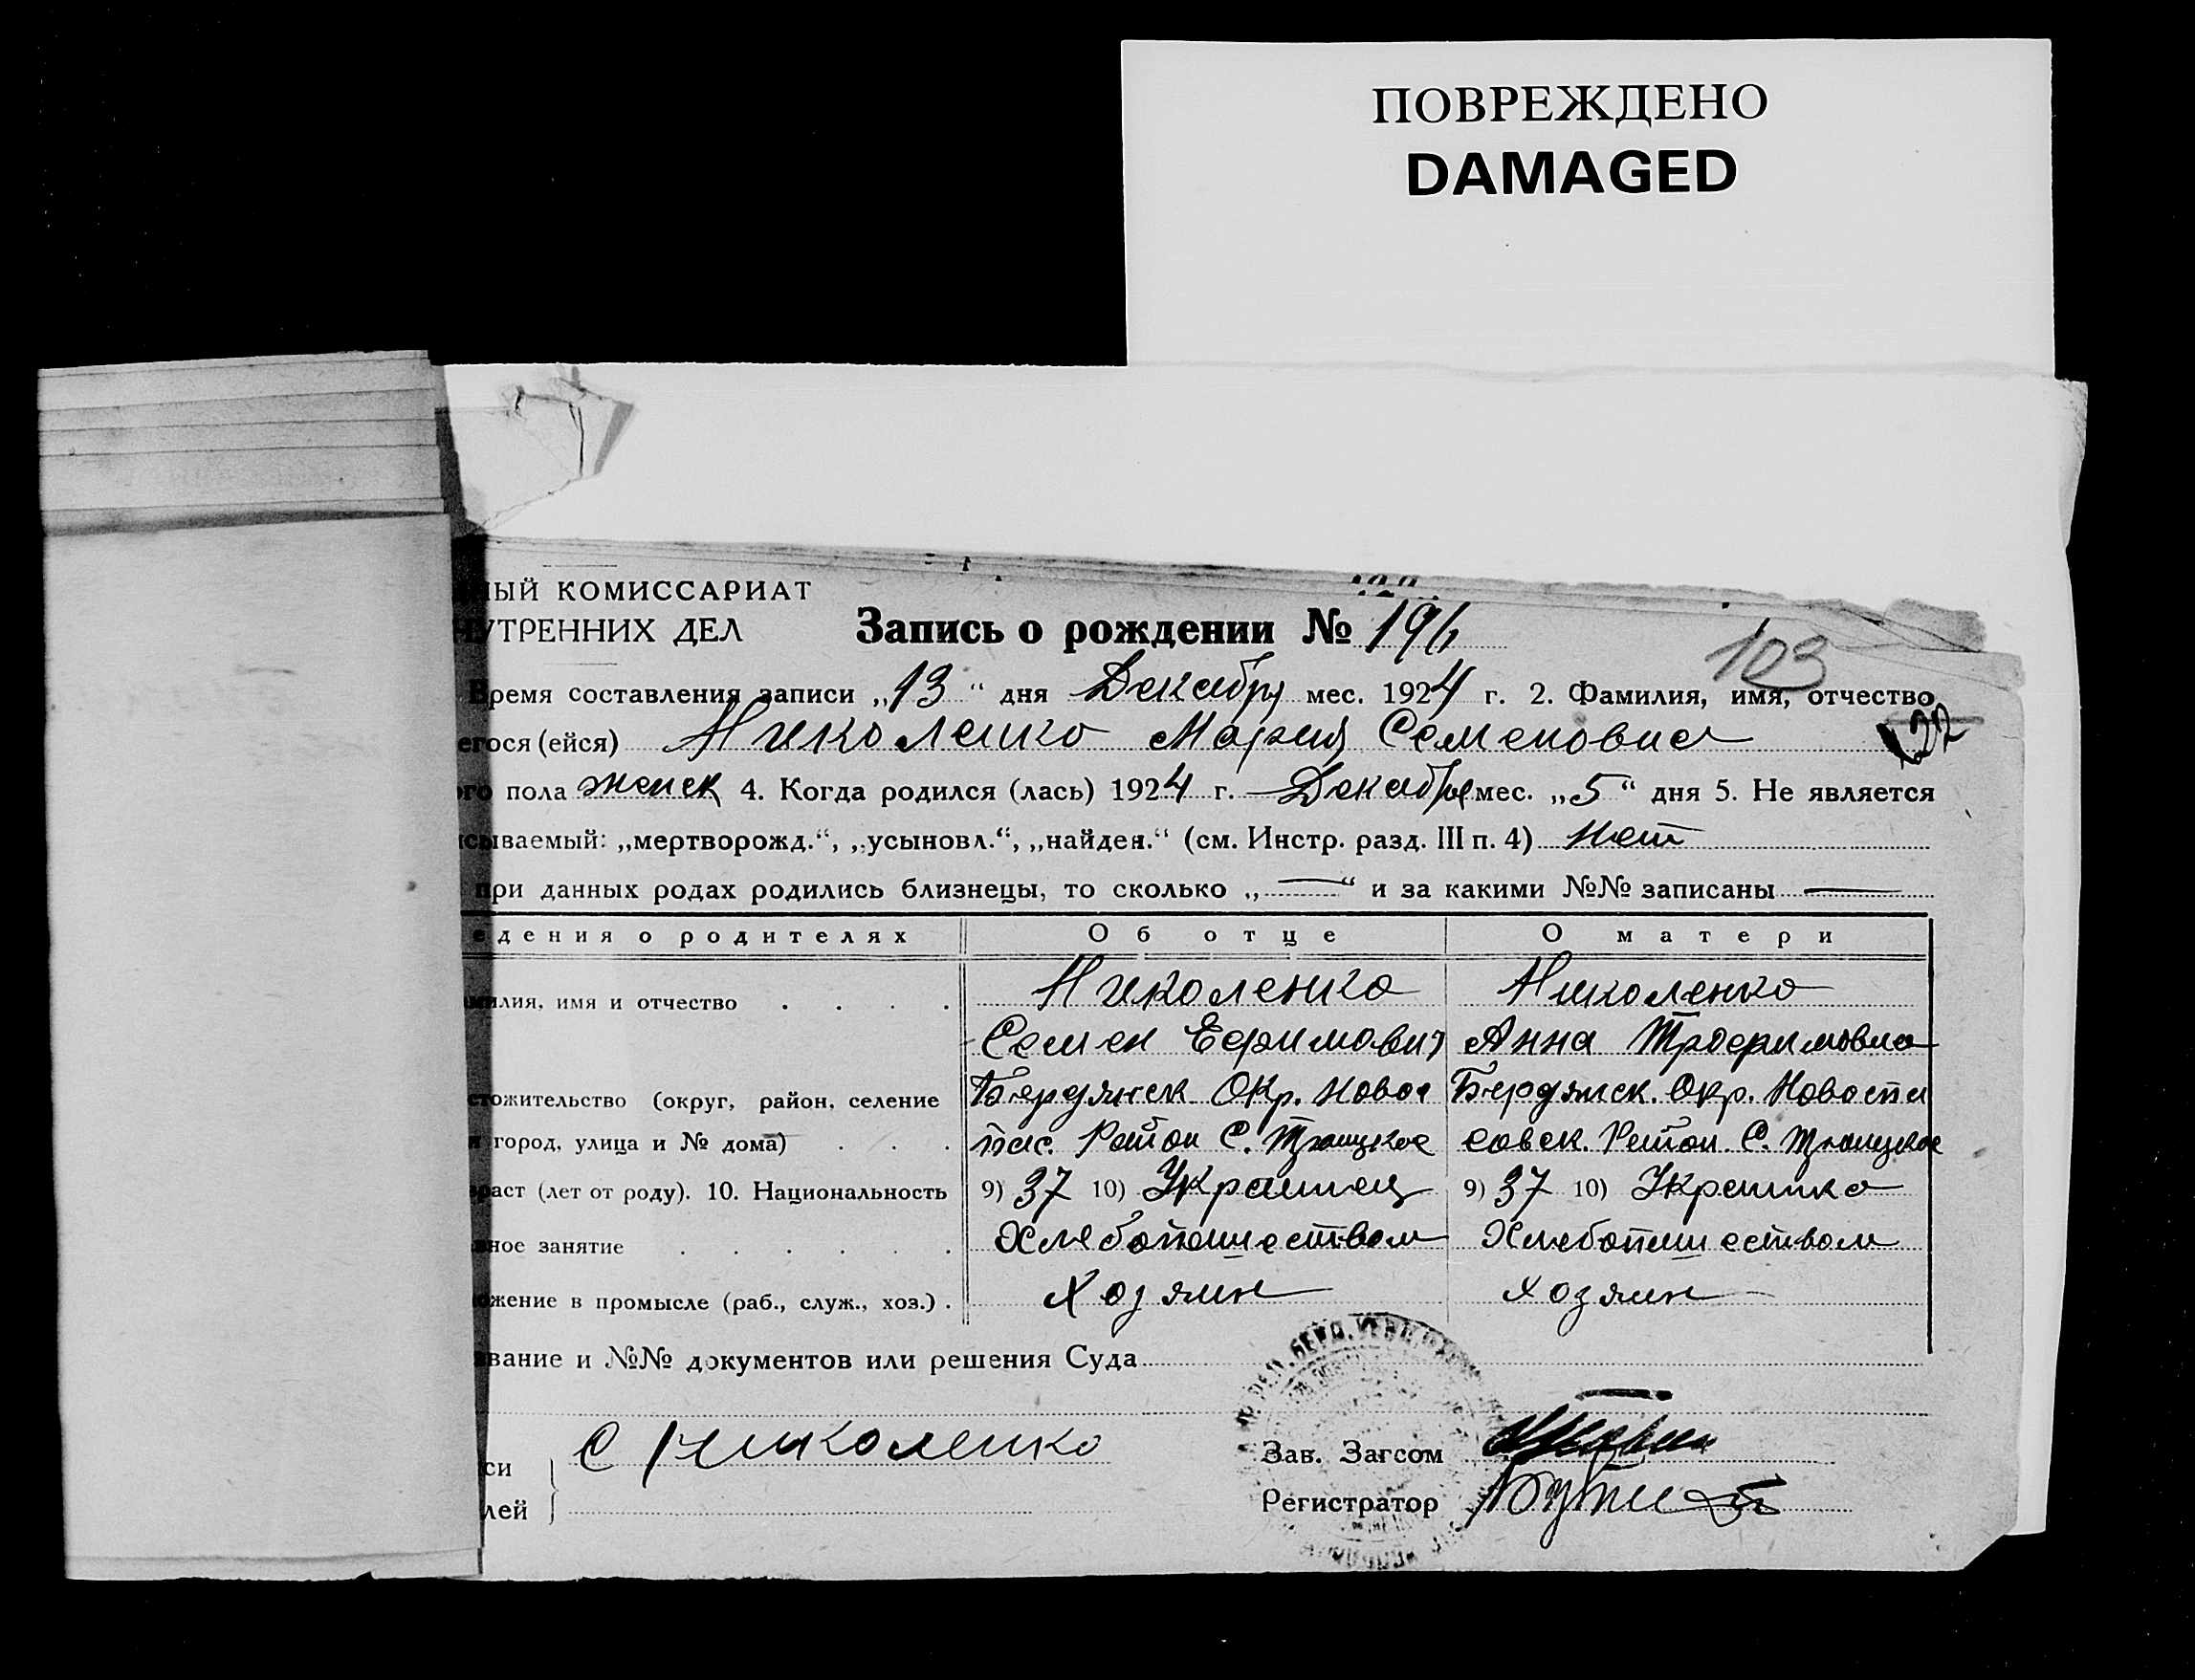 ПОВРЕЖДЕНО
DAMAGED
ный КОМИССАРИАТ
УТРЕННИХ ДЕЛ
Запись о рождении № 196
103
Время составления записи „13“ дня Декабря мес. 1924 г. 2. Фамилия, имя, отчество
егося (ейся) Николенко Мария Семеновна
122
ого пола женск 4. Когда родился (лась) 1924 г. Декабря мес. „5“ дня 5. Не является
сываемый: „мертворожд.“, „усыновл.“, „найден.“ (см. Инстр. разд. III п. 4) Нет
при данных родах родились близнецы, то сколько „—“ и за какими №№ записаны —
едения о родителях Об отце О матери
милия, имя и отчество . . . . Николенко Николенко
Семен Ефимович Анна Трофимовна
стожительство (округ, район, селение Бердянск Окр. Новос Бердянск. Окр. Новоспа
и город, улица и № дома) . . . пас. Район С. Троицкое совск. Район С. Троицкое
раст (лет от роду). 10. Национальность 9) 37 10) Украинец 9) 37 10) Украинка
вное занятие . . . . . . Хлебопашеством Хлебопашеством
ожение в промысле (раб., служ., хоз.) . Хозяин хозяин
вание и №№ документов или решения Суда
С Николенко
си
лей
Зав. Загсом
Регистратор